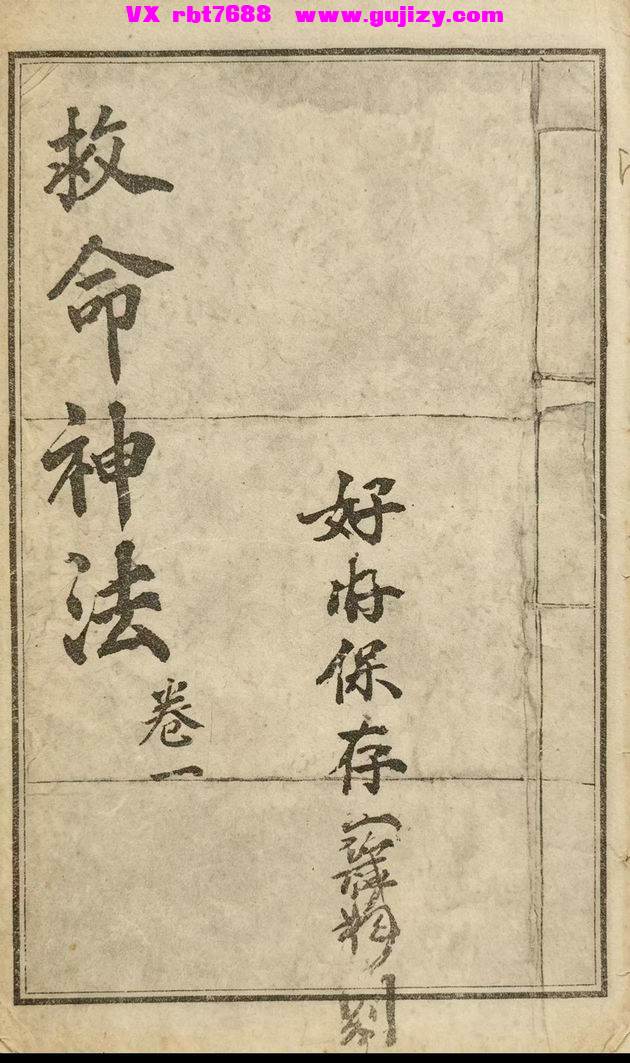 VX rbt7688 www.gujizy.com
好好保存
救命神法
卷一